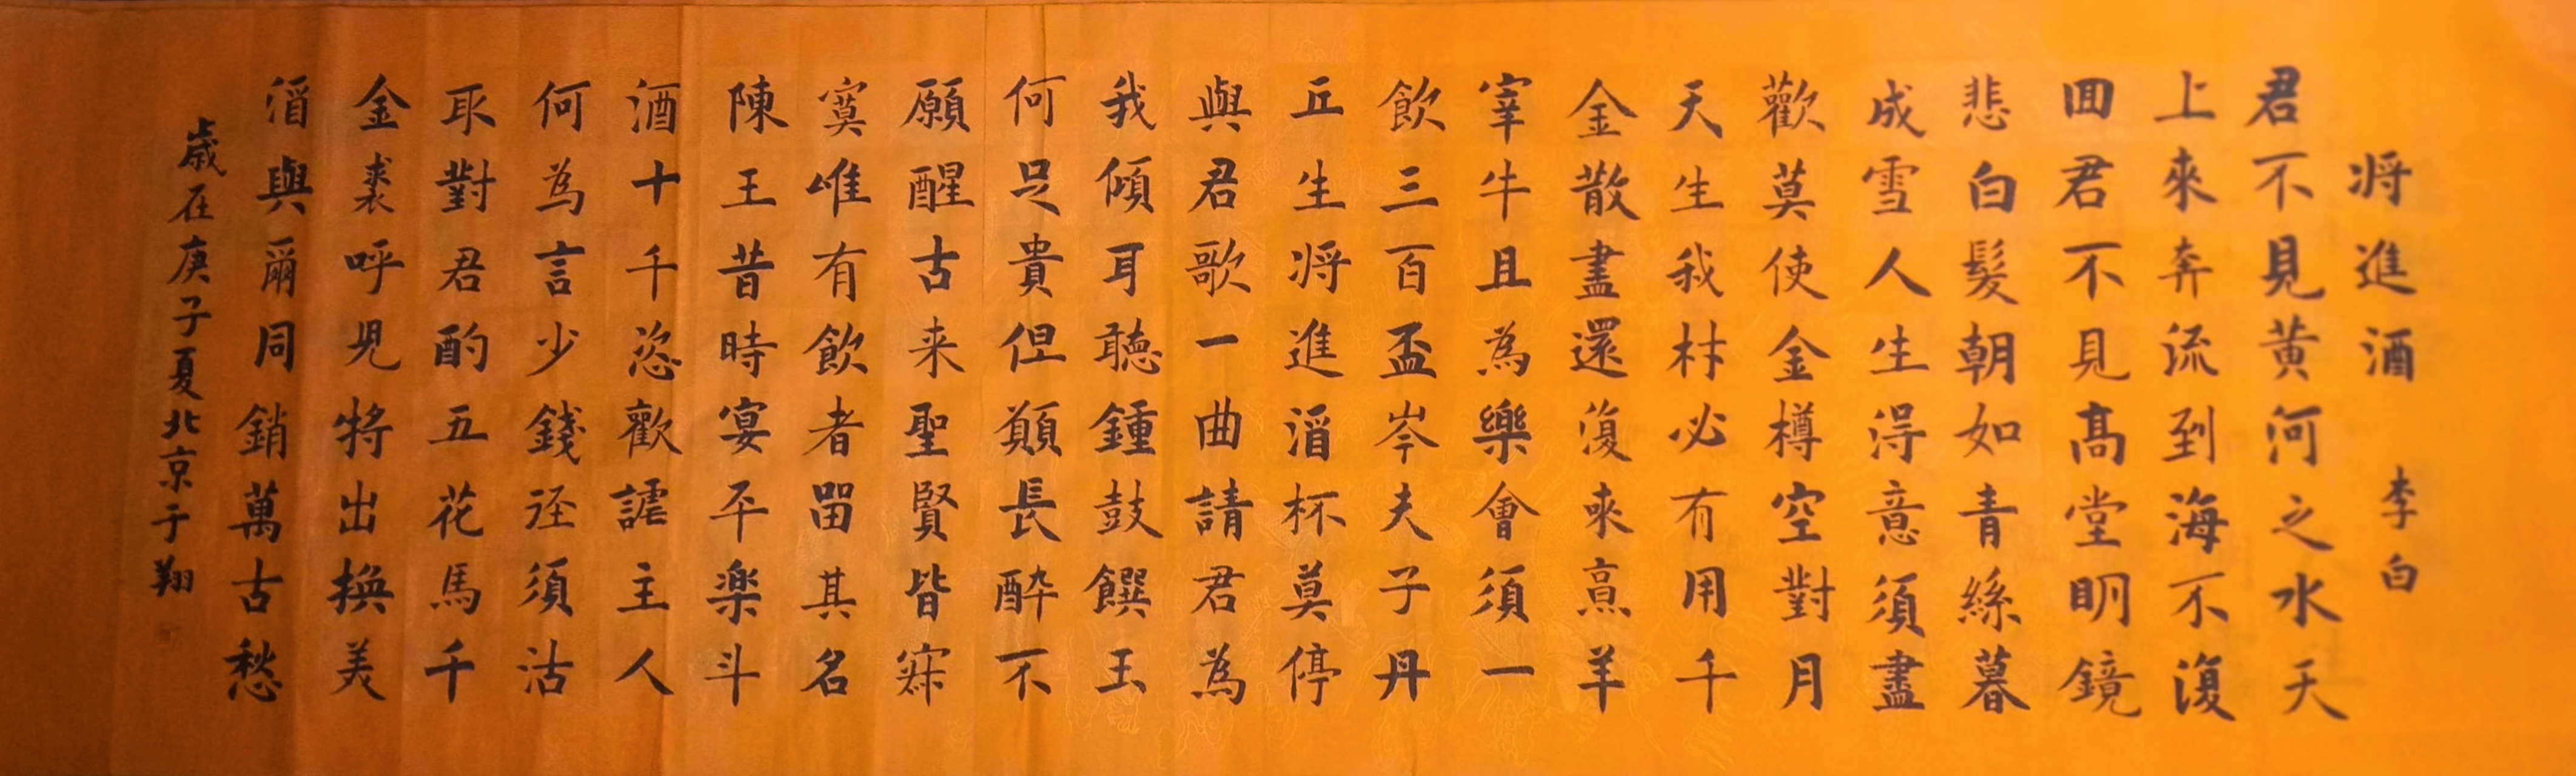 将進酒 李白
君不見黄河之水天
上來奔流到海不復
囬君不見髙堂眀鏡
悲白髮朝如青絲暮
成雪人生得意須盡
歡莫使金樽空對月
天生我材必有用千
金散盡還復来烹羊
宰牛且為樂會須一
飲三百盃岑夫子丹
丘生将進酒杯莫停
與君歌一曲請君為
我傾耳聽鍾鼓饌玉
何足貴但願長酔不
願醒古来聖賢皆寂
寞唯有飲者留其名
陳王昔時宴平楽斗
酒十千恣歡謔主人
何為言少錢迳須沽
取對君酌五花馬千
金裘呼児将出換美
酒與爾同銷萬古愁
歳在庚子夏北京于翔